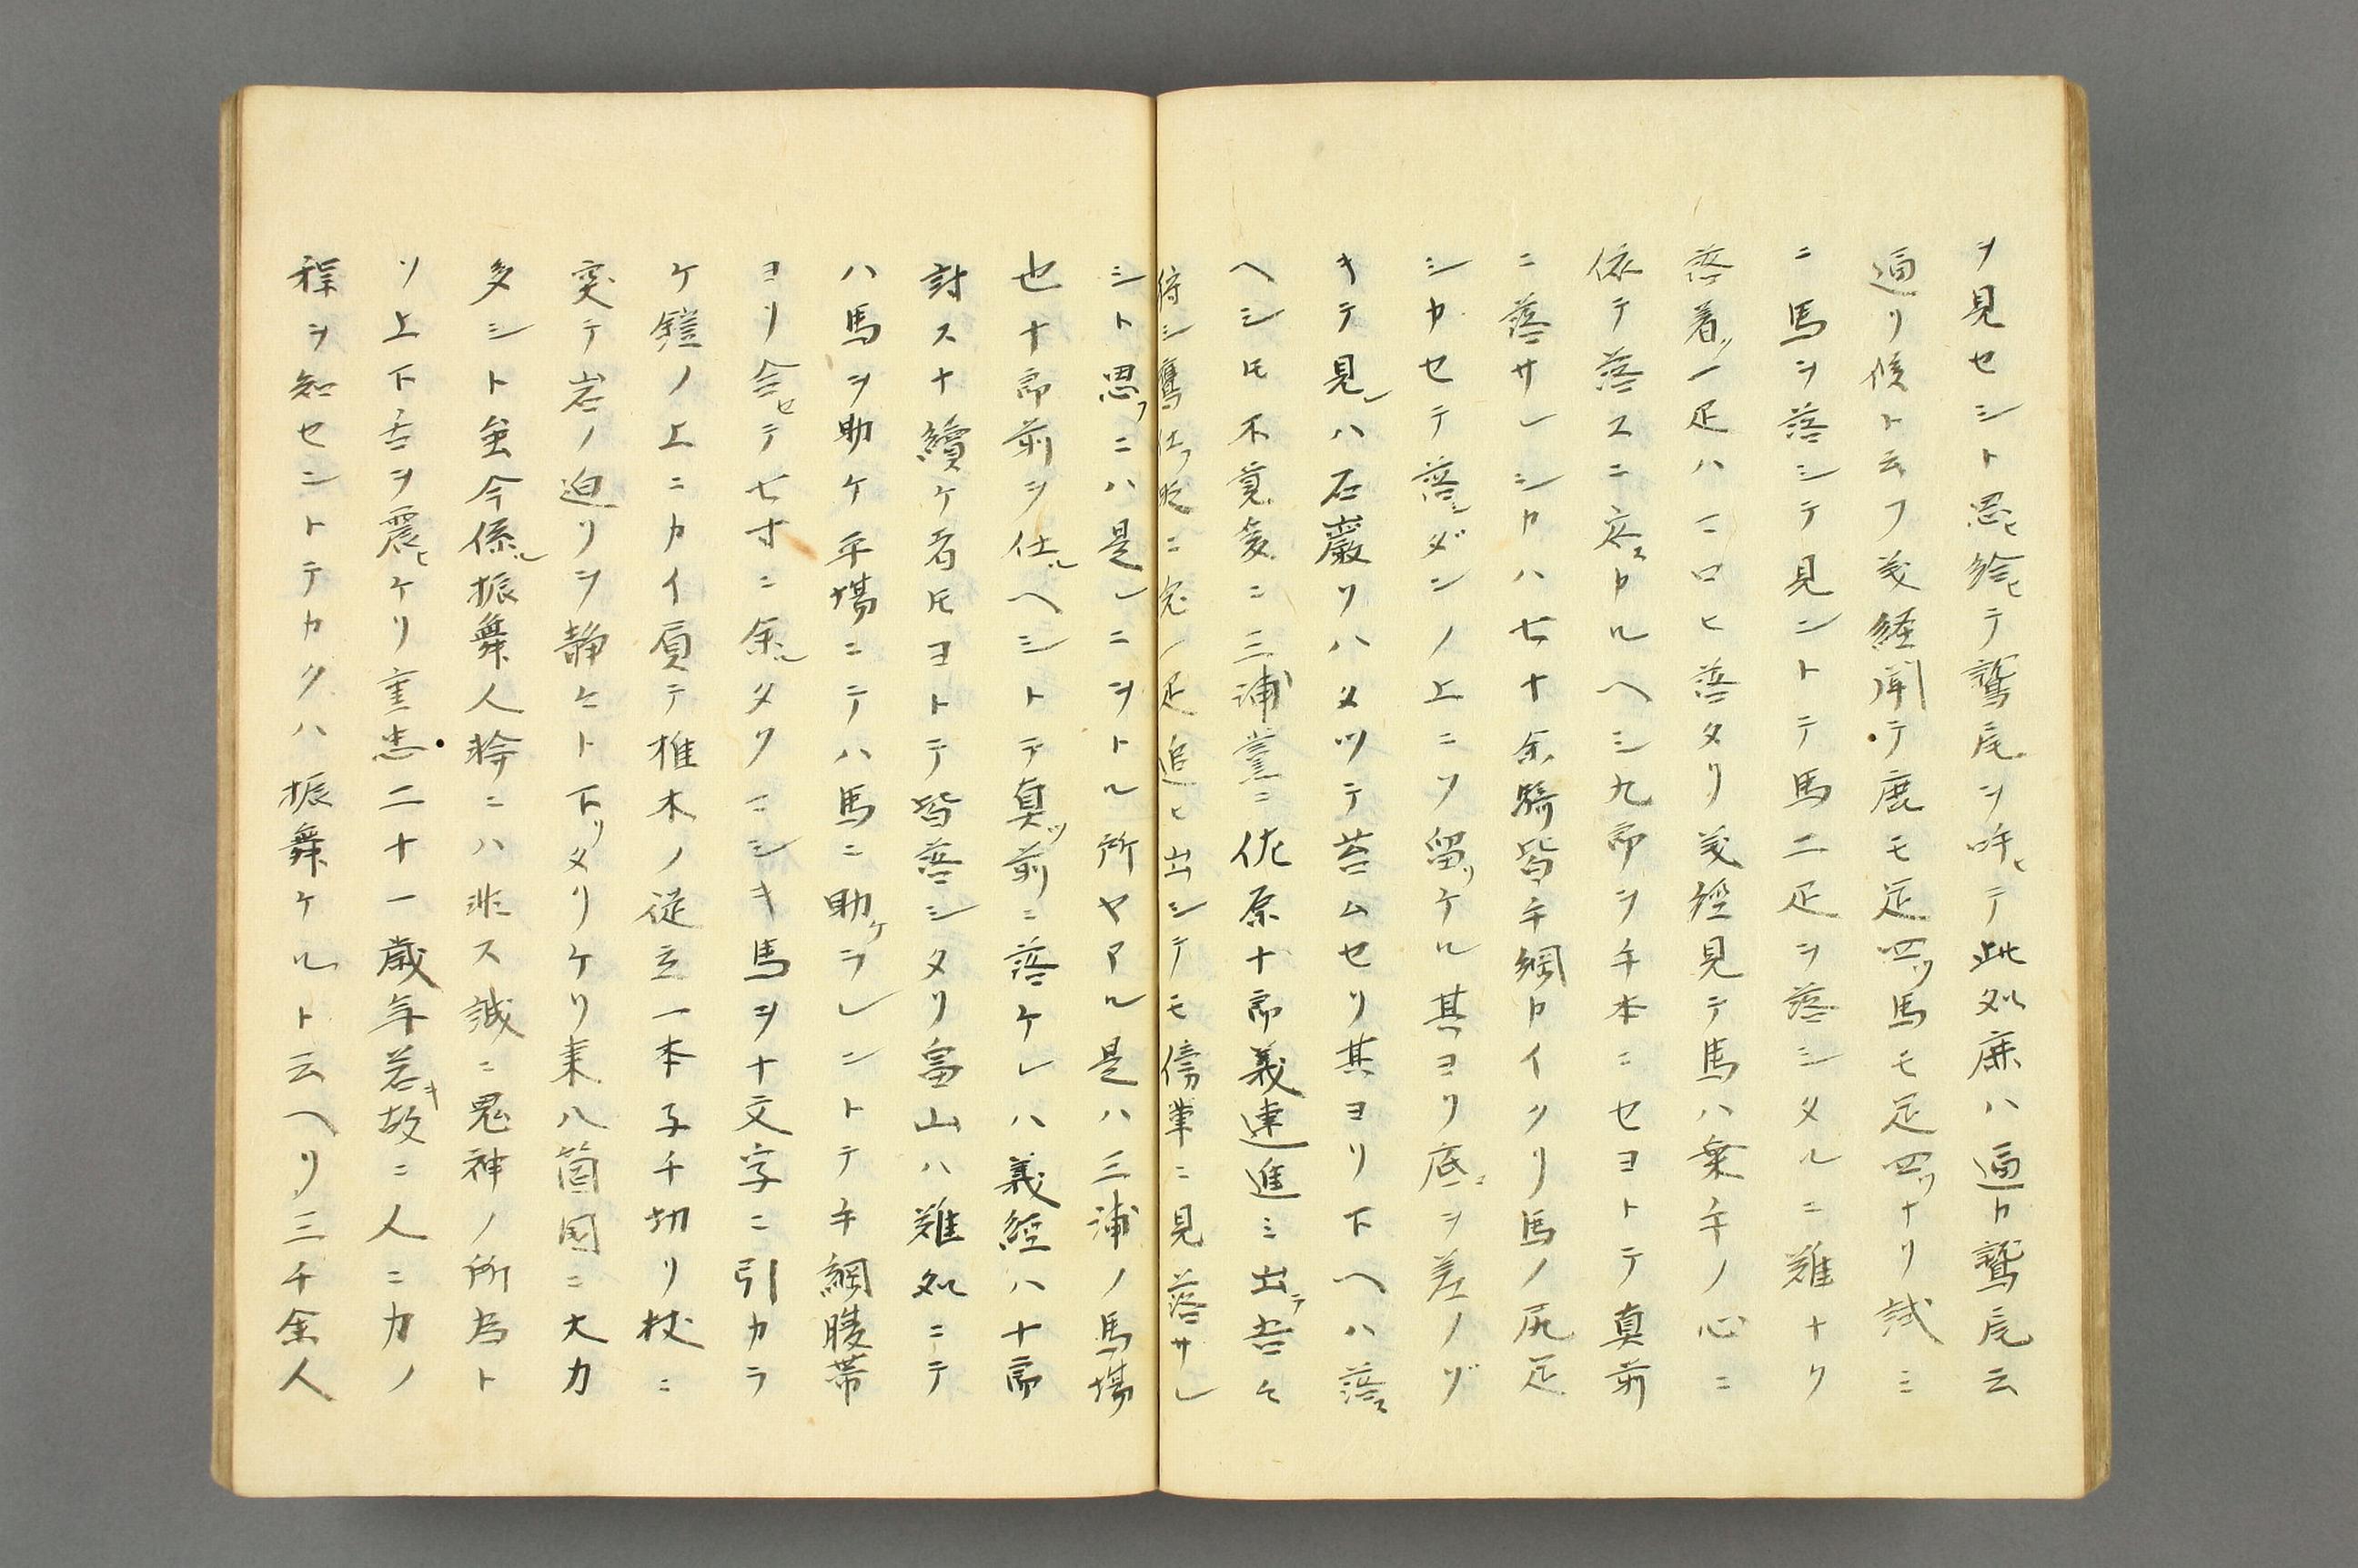 ヲ見セシト思ヒ給ヒテ鷲尾ヲ呼ヒテ此処鹿ハ通カ鷲尾云
通リ候ト云フ義経聞テ鹿モ足四ツ馬モ足四ツナリ試ミ
ニ馬ヲ落シテ見ントテ馬二疋ヲ落シタルニ難ナリ
落着ツ一疋ハコロヒ落タリ義経見テ馬ハ乗手ノ心ニ
依テ落スニ落スカルヘシ九郎ヲ手本ニセヨトテ真前
ニ落サレシカハ七十余騎皆手綱カイクリ馬ノ尻足
シカセテ落シダンノ上ニソ留リケル其ヨリ底ヲ差ノゾ
キテ見レハ石巌リハタツテ苔ムセリ其ヨリ下ヘハ落ス
ヘシ𪜈不覚処ニ三浦党ニ佐原十郎義連進ミ出テ吾々
狩シ鷹仕フ時ニ兔一疋追ヒ出シテモ傍輩ニ見落サレ
シト思フニハ是レニヲトル所ヤアル是ハ三浦ノ馬場
也十郎前ヲ仕ルヘシトテ真ツ前ニ落ケレハ義経ハ十郎
討スナ續ケ者𪜈ヨトテ皆落シタリ畠山ハ難処ニテ
ハ馬ヲ助ケ平場ニテハ馬ニ助ケラレントテ手綱腹帯
ヨリ合セテ七寸ニ余ルタクマシキ馬ヲ十文字ニ引カラ
ケ鎧ノ上ニカイ負テ椎木ノ従立一本子チ切リ杖ニ
突テ岩ノ迫リヲ静々ト下リタリケリ東八箇国ニ大力
多シト虽今係ル振舞人倫ニハ非ス誠ニ鬼神ノ所為ト
ソ上下舌ヲ震ヒケリ重忠二十一歳年若キ故ニ人ニカノ
程ヲ知セントテカクハ振舞ケルト云ヘリ三千余人